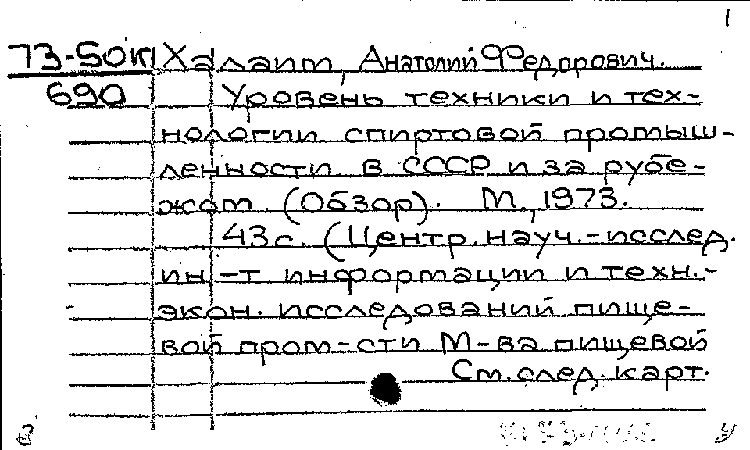 1
73-50к Халаит, Анатолий Федорович.
690 Уровень техники и тех-
нологии спиртовой промыш-
ленности в СССР и за рубе-
жом. (Обзор). М., 1973.
43с. (Центр. науч.-исслед.
ин-т информации и техн.-
экон. исследований пище-
вой пром-сти М-ва пищевой
См. след. карт.